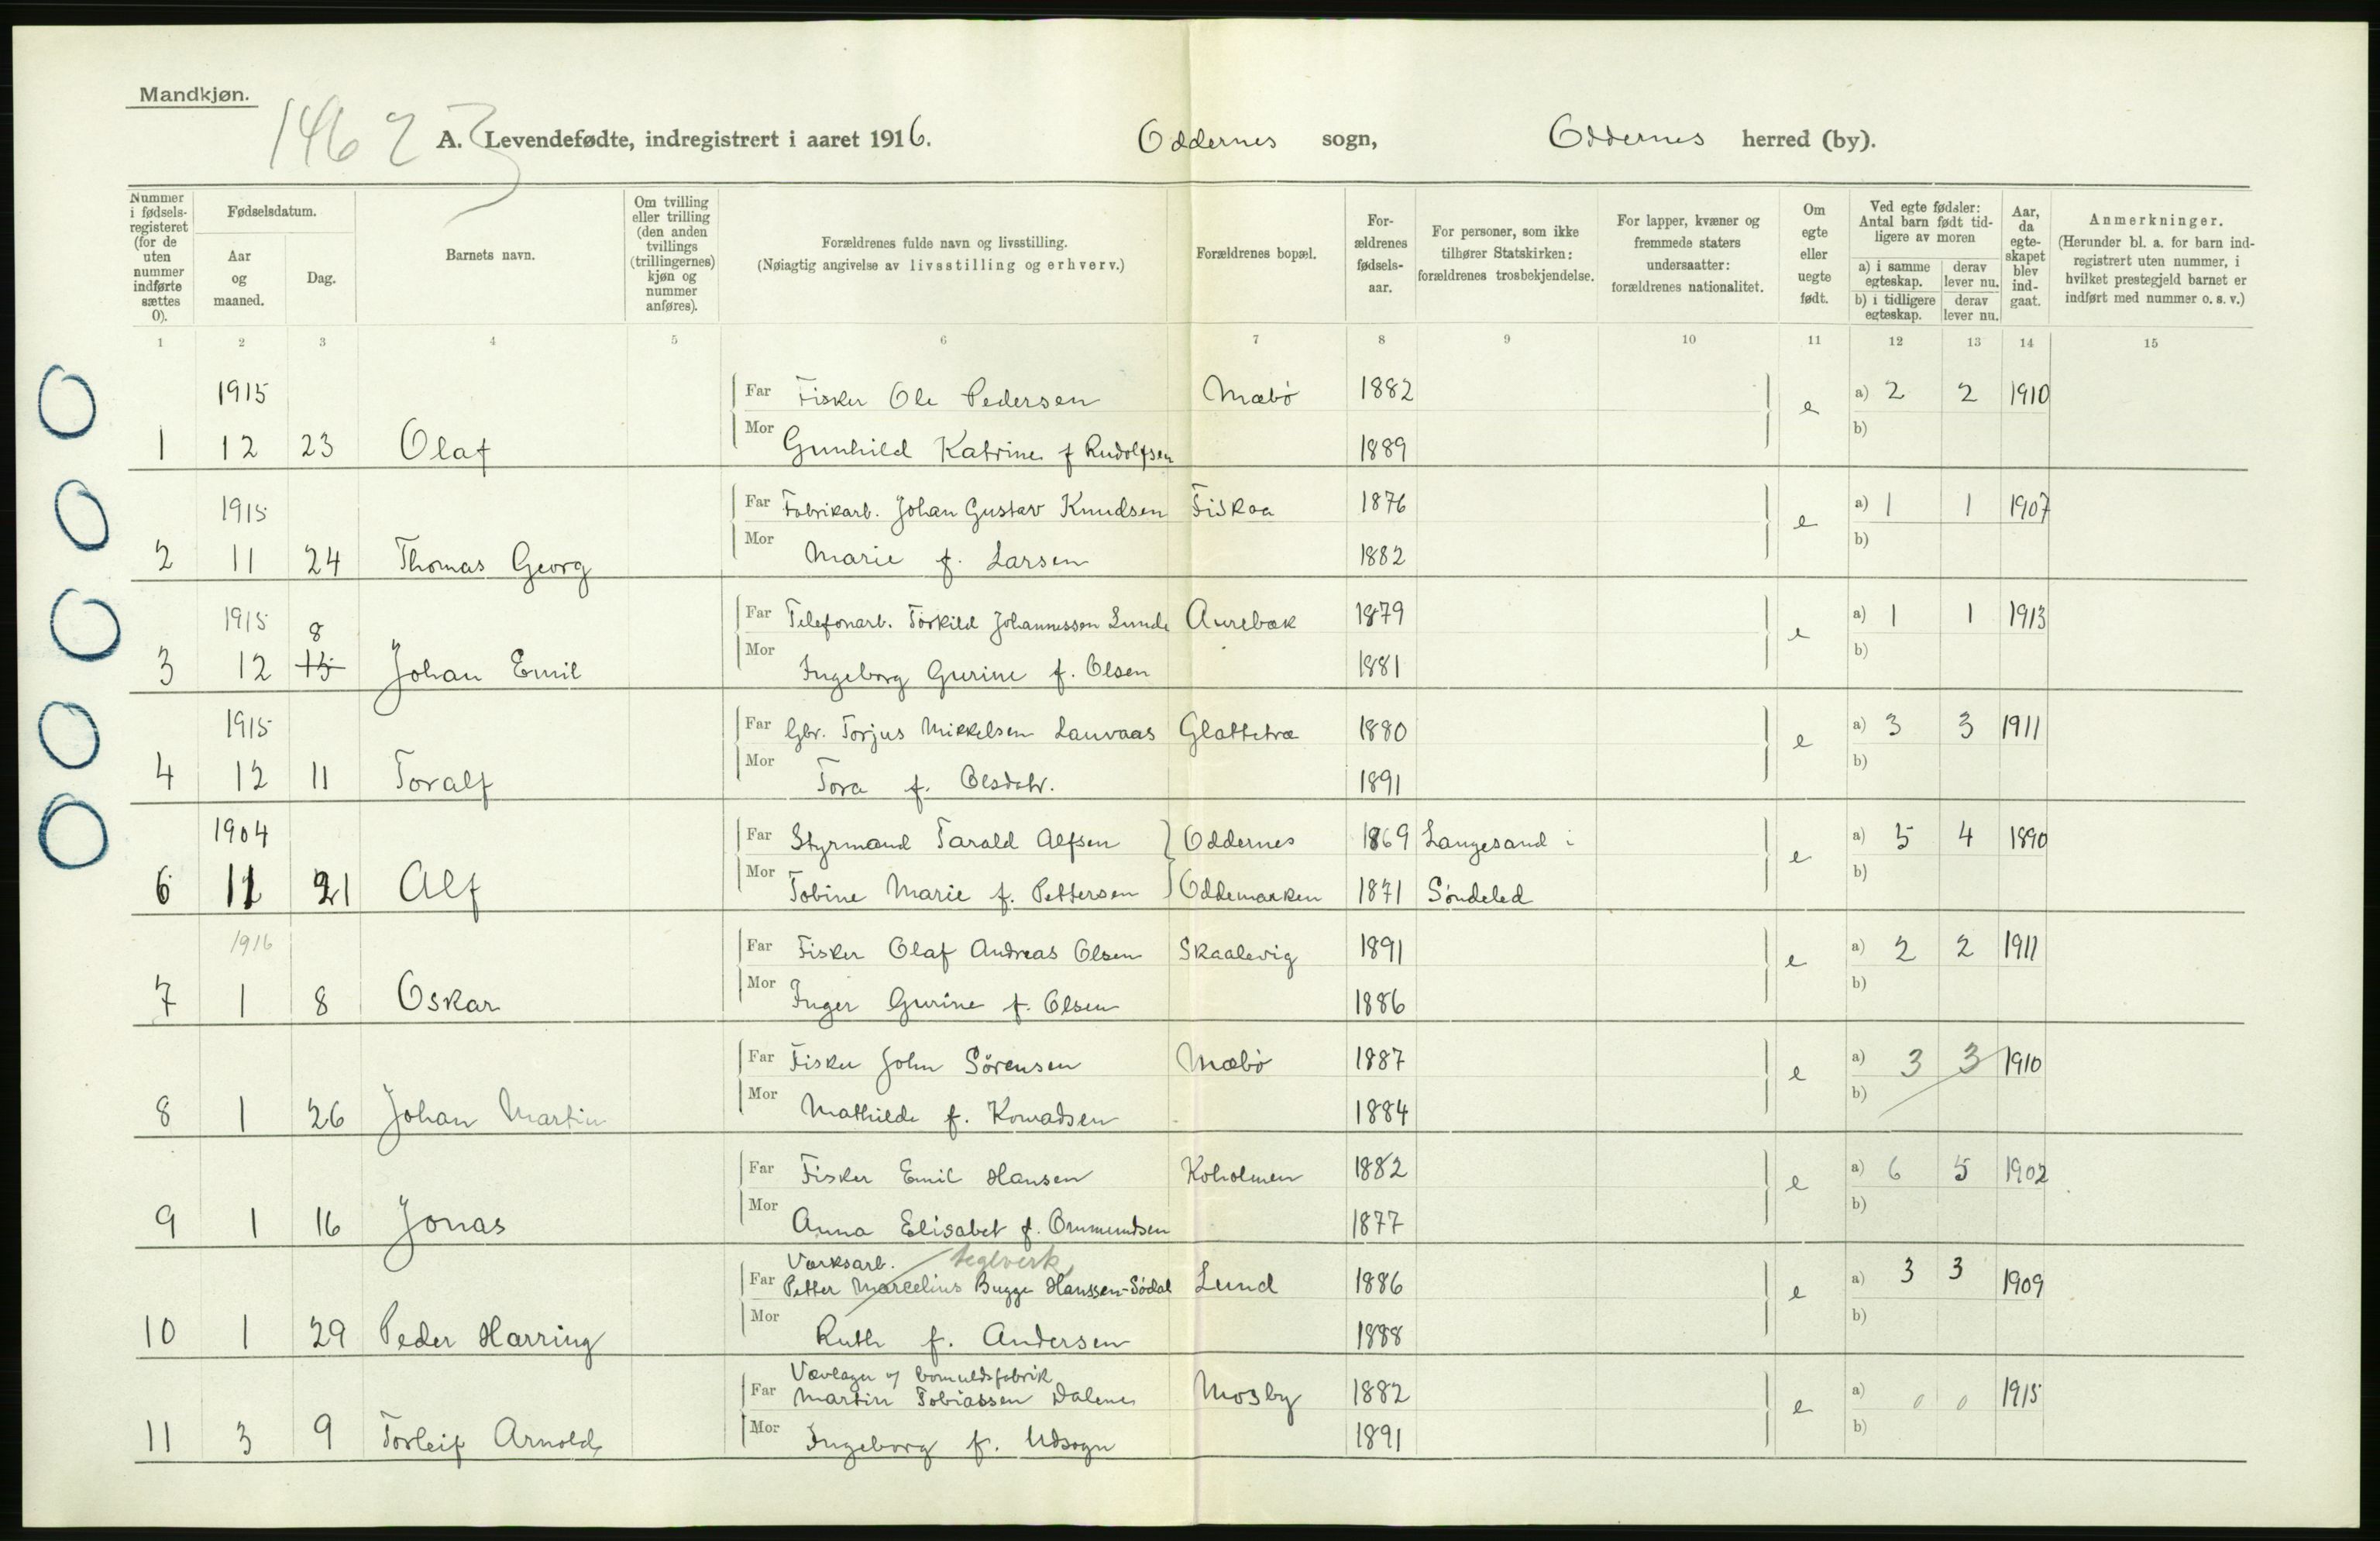 Mandkjøn.
1462
A. Levendefødte, indregistrert i aaret 1916. Oddernes sogn, Oddernes herred (by).
Nummer i fødsels-registeret (for de uten nummer indførte sættes 0).
Fødselsdatum.
Aar og maaned.
Dag.
Barnets navn.
Om tvilling eller trilling (den anden tvillings (trillingernes) kjøn og nummer anføres).
Forældrenes fulde navn og livsstilling.
(Nøiagtig angivelse av livsstilling og erhverv.)
Forældrenes bopæl.
For-ældrenes fødsels-aar.
For personer, som ikke tilhører Statskirken: forældrenes trosbekjendelse.
For lapper, kvæner og fremmede staters undersaatter: forældrenes nationalitet.
Om egte eller uegte født.
Ved egte fødsler: Antal barn født tid-ligere av moren
a) i samme egteskap. derav lever nu.
b) i tidligere egteskap. derav lever nu.
Aar, da egte-skapet blev ind-gaat.
Anmerkninger.
(Herunder bl. a. for barn ind-registrert uten nummer, i hvilket prestegjeld barnet er indført med nummer o. s. v.)
1 2 3 4 5 6 7 8 9 10 11 12 13 14 15
1915 Far Fisker Ole Pedersen Mæbø 1882 e a) 2 2 1910
1 12 23 Olaf Mor Gunhild Katrine f Rudolfsen 1889 b)
1915 Far Fabrikarb. Johan Gustav Knudsen Fiskaa 1876 e a) 1 1 1907
2 11 24 Thomas Georg Mor Marie f. Larsen 1882 b)
1915 8 Far Telefonarb. Torkild Johannessen Lunde Aurebæk 1879 e a) 1 1 1913
3 12 15 Johan Emil Mor Ingeborg Gurine f. Olsen 1881 b)
1915 Far Gbr. Torjus Mikkelsen Lauvaas Glattetræ 1880 e a) 3 3 1911
4 12 11 Toralf Mor Tora f. Olsdatr. 1891 b)
1904 Far Styrmand Tarald Alfsen Oddernes 1869 Langesand i e a) 5 4 1890
6 11 21 Alf Mor Tobine Marie f. Pettersen Oddemarken 1871 Søndeled b)
1916 Far Fisker Olaf Andreas Olsen Skaalevig 1891 e a) 2 2 1911
7 1 8 Oskar Mor Inger Gurine f. Olsen 1886 b)
Far Fisker John Sørensen Mæbø 1887 e a) 3 3 1910
8 1 26 Johan Martin Mor Mathilde f. Konradsen 1884 b)
Far Fisker Emil Hansen Koholmen 1882 e a) 6 5 1902
9 1 16 Jonas Mor Anna Elisabet f. Ommundsen 1877 b)
Værksarb. teglverk
Far Petter Marcelius Bugge Hanssen-Sødal Lund 1886 e a) 3 3 1909
10 1 29 Peder Harring Mor Ruth f. Andersen 1888 b)
bomuldsfabrik
Far Martin Tobiassen Dalene Mosby 1882 e a) 0 0 1915
11 3 9 Torleif Arnold Mor Ingeborg f. Udsogn 1891 b)